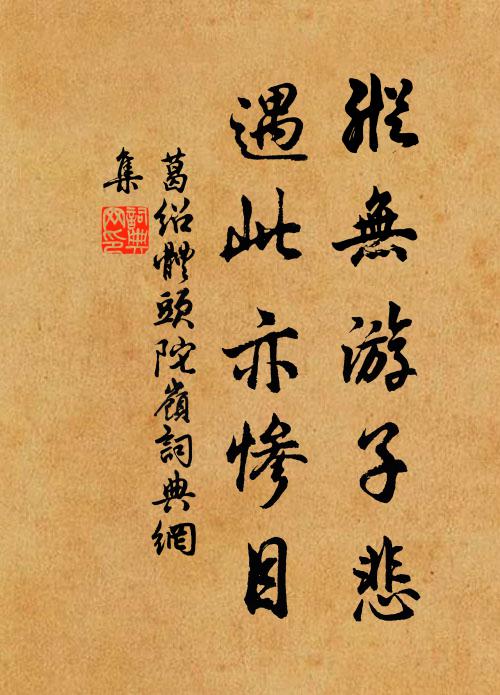 縱無游子悲
遇此亦慘目
葛绍體頭陀嶺詞典網
集
詞典
网印